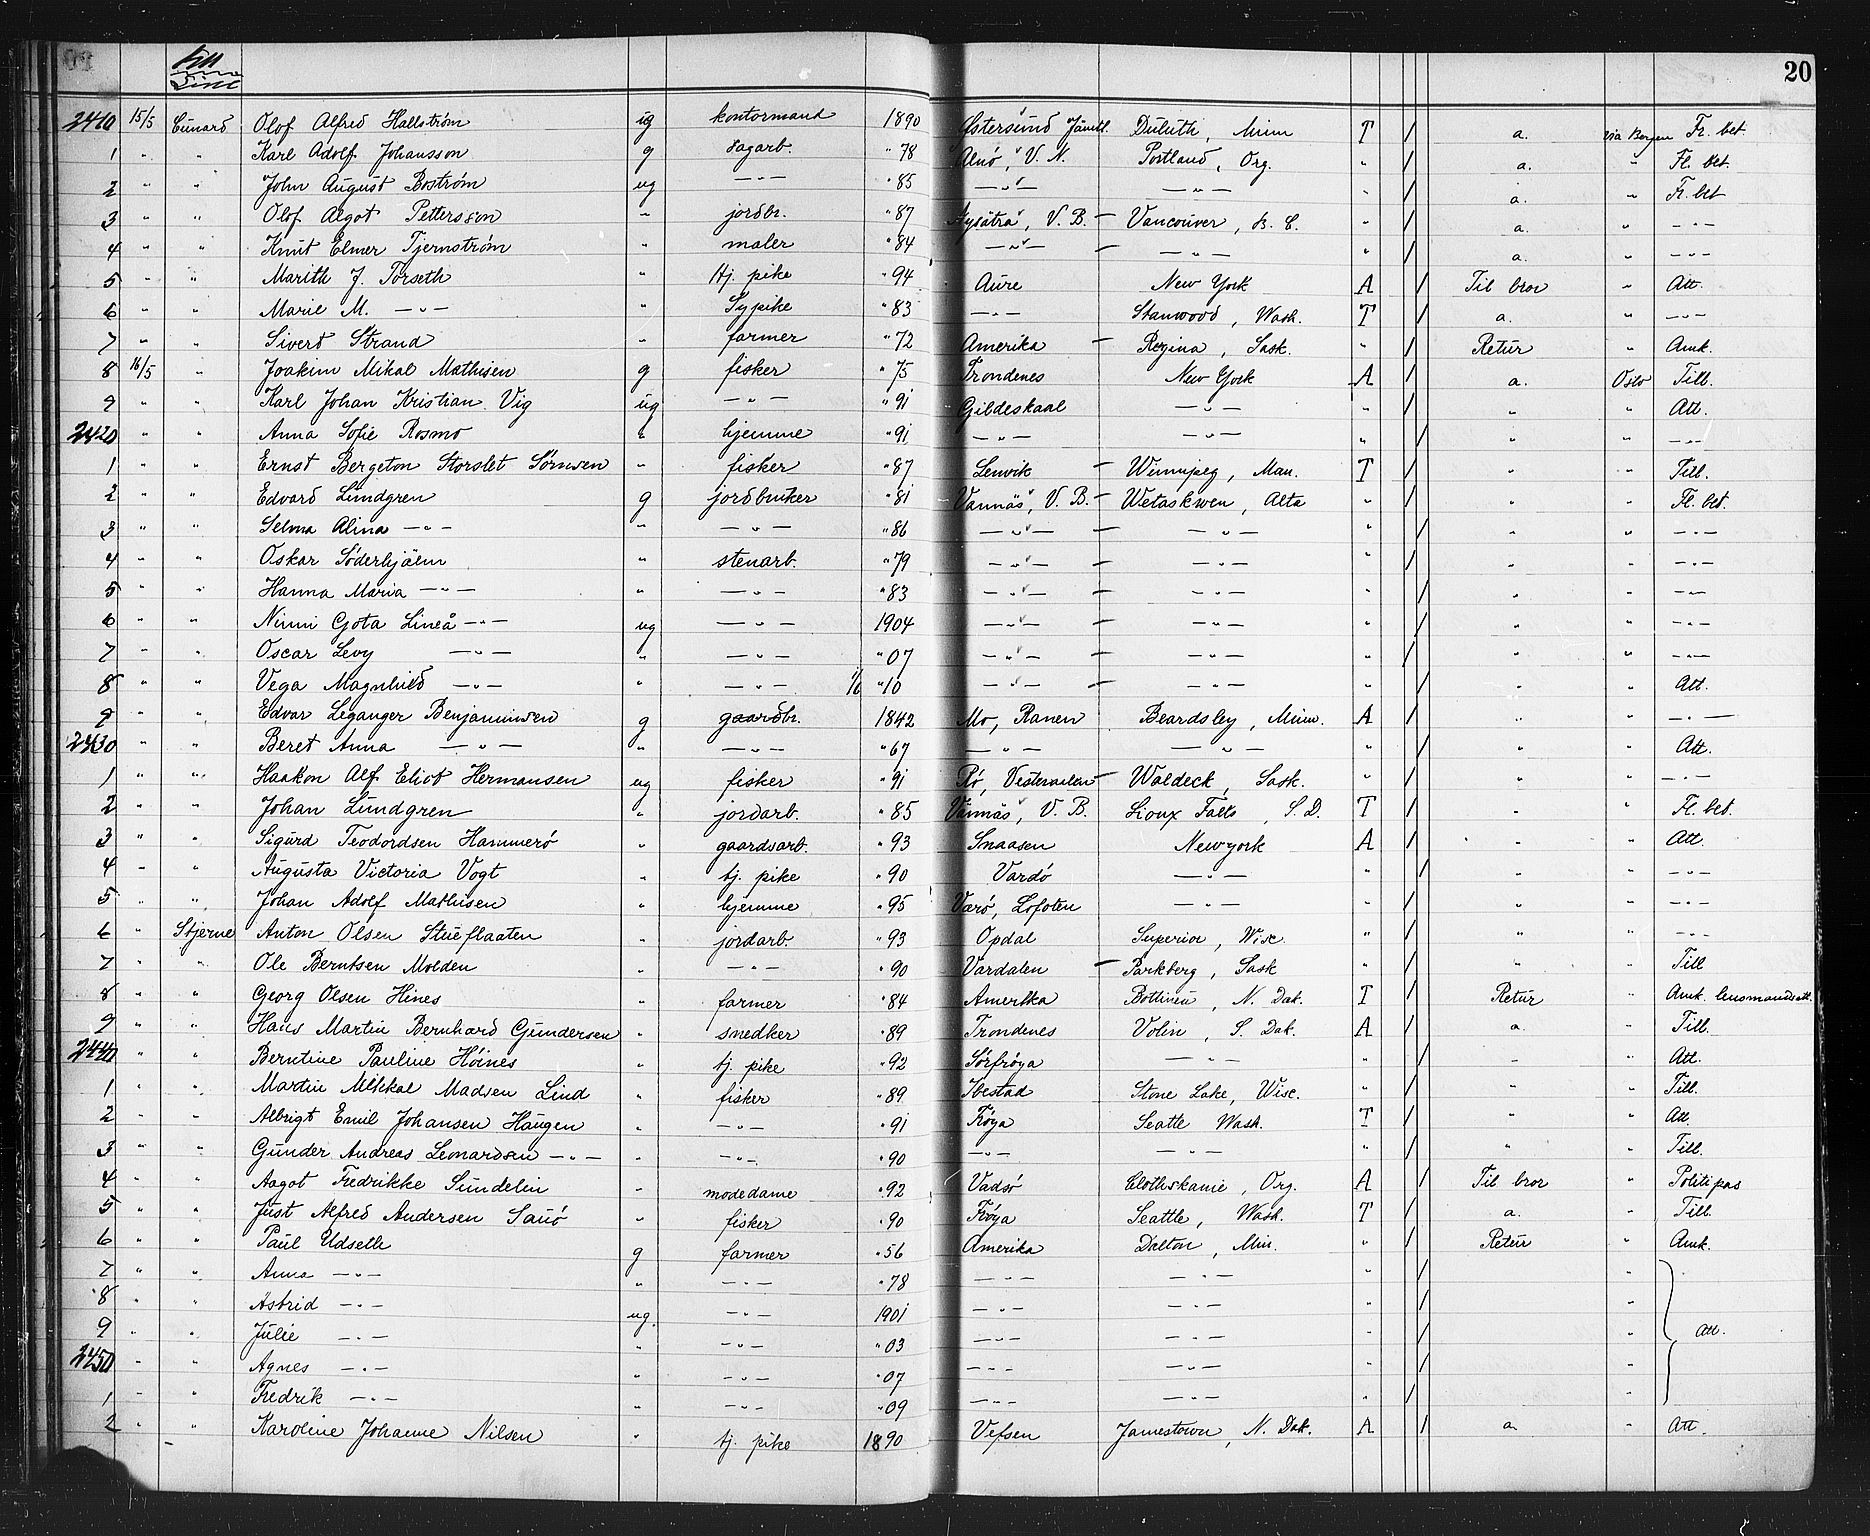 20
Linie
2410 15/5 Cunard Olof Alfred Hallström ug kontormand 1890 Østersund Jämtl. Duluth, Minn T / a. via Bergen Fr. bet.
1 " " Karl Adolf Johansson g sagarb. " 78 Alnö, V. N. Portland, Org. " / a. " Fl. bet.
2 " " John August Boström ug —"— " 85 —"— —"— " / a. " Fr. bet
3 " " Olof Algot Pettersson " jordbr. " 87 Nysätra, V. B. — Vancouver, B. C. " / a. " —"—
4 " " Knut Elmer Tjernström " maler " 84 —"— — —"— " / a. " —"—
5 " " Marith J. Torseth " tj. pike " 94 Aure New York A / Til bror " Att.
6 " " Marie M. —"— " Sypike " 83 —"— Stanwood, Wash. T / a. " —"—
7 " " Sivert Strand " farmer " 72 Amerika — Regina, Sask. " / Retur " Amk.
8 16/5 " Joakim Mikal Mathisen g fisker " 75 Trondenes New York A / a. Oslo Till.
9 " " Karl Johan Kristian Vig ug —"— " 91 Gildeskaal —"— " / " " Att.
2420 " " Anna Sofie Rosmo " hjemme " 91 —"— —"— " / " " —"—
1 " " Ernst Bergeton Storslet Sörnsen " fisker " 87 Lenvik — Winnipeg, Man. T / " " Till.
2 " " Edvard Lundgren g jordbruker " 81 Vännäs, V. B. — Wetaskwen, Alta " / " " Fl. bet.
3 " " Selma Alina —"— " —"— " 86 —"— — —"— " / " " —"—
4 " " Oskar Söderhjälm " stenarb. " 79 —"— — —"— " / " " —"—
5 " " Hanna Maria —"— " —"— " 83 —"— — —"— " / " " —"—
6 " " Nimmi Gjota Lineå —"— ug —"— 1904 —"— — —"— " / " " —"—
7 " " Oscar Levy —"— " —"— " 07 —"— — —"— " / " " —"—
8 " " Vega Magnhild —"— " —"— 1/6 " 10 —"— — —"— " / " " Att.
9 " " Edvar Leganger Benjaminsen g gaardbr. 1842 Mo, Ranen Beardsley, Minn. A / " " —"—
2430 " " Beret Anna —"— " —"— " 67 —"— —"— " / " " Att.
1 " " Haakon Alf Eliot Hermansen ug fisker " 91 Bö, Vesteraalen — Waldeck, Sask. " / " " —"—
2 " " Johan Lundgren " jordarb. " 85 Vännäs, V. B. Sioux Falls, S. D. T / " " Fl. bet.
3 " " Sigurd Teodordsen Hammerö " gaardsarb. " 93 Snaasen Newyork A / " " Att.
4 " " Augusta Victoria Vogt " tj. pike " 90 Vardö —"— " / " " —"—
5 " " Johan Adolf Mathisen " hjemme " 95 Værö, Lofoten —"— " / " " —"—
6 " Stjerne Anton Olsen Stueflaaten " jordarb. " 93 Opdal Superior, Wisc. " / " " —"—
7 " " Ole Berntsen Molden " —"— " 90 Værdalen — Parkberg, Sask " / " " Till
8 " " Georg Olsen Hines " farmer " 84 Amerika Bottineu, N. Dak. T / Retur " Amk. lensmandsatt.
9 " " Hans Martin Bernhard Gundersen " snedker " 89 Trondenes Volin, S. Dak. A / a. " Till.
2440 " " Berntine Pauline Höines " tj. pike " 92 Sörfröya —"— " / " " Att.
1 " " Martin Mikkal Madsen Lind " fisker " 89 Ibestad Stone Lake, Wisc. " / " " Till.
2 " " Albrigt Emil Johansen Haugen " —"— " 91 Fröya Seattle Wash. T / " " Att.
3 " " Gunder Andreas Leonardsen —"— " —"— " 90 —"— —"— " / " " Till.
4 " " Aagot Fredrikke Sundelin " modedame " 92 Vadsö Clothskanie, Org. A / Til bror " Politipas
5 " " Just Alfred Andersen Sauö " fisker " 90 Fröya Seattle, Wash. T / a. " Till.
6 " " Paul Udseth g farmer " 56 Amerika Dalton, Min. " / Retur " Amk.
7 " " Anna —"— " —"— " 78 —"— —"— / "
8 " " Astrid —"— ug. —"— 1901 —"— —"— / "
9 " " Julie —"— " —"— " 03 —"— —"— / " Att.
2450 " " Agnes —"— " —"— " 07 —"— —"— / "
1 " " Fredrik —"— " —"— " 09 —"— —"— " / "
2 " " Karoline Johanne Nilsen " tj. pike 1890 Vefsen Jamestown, N. Dak. A / a " Att.